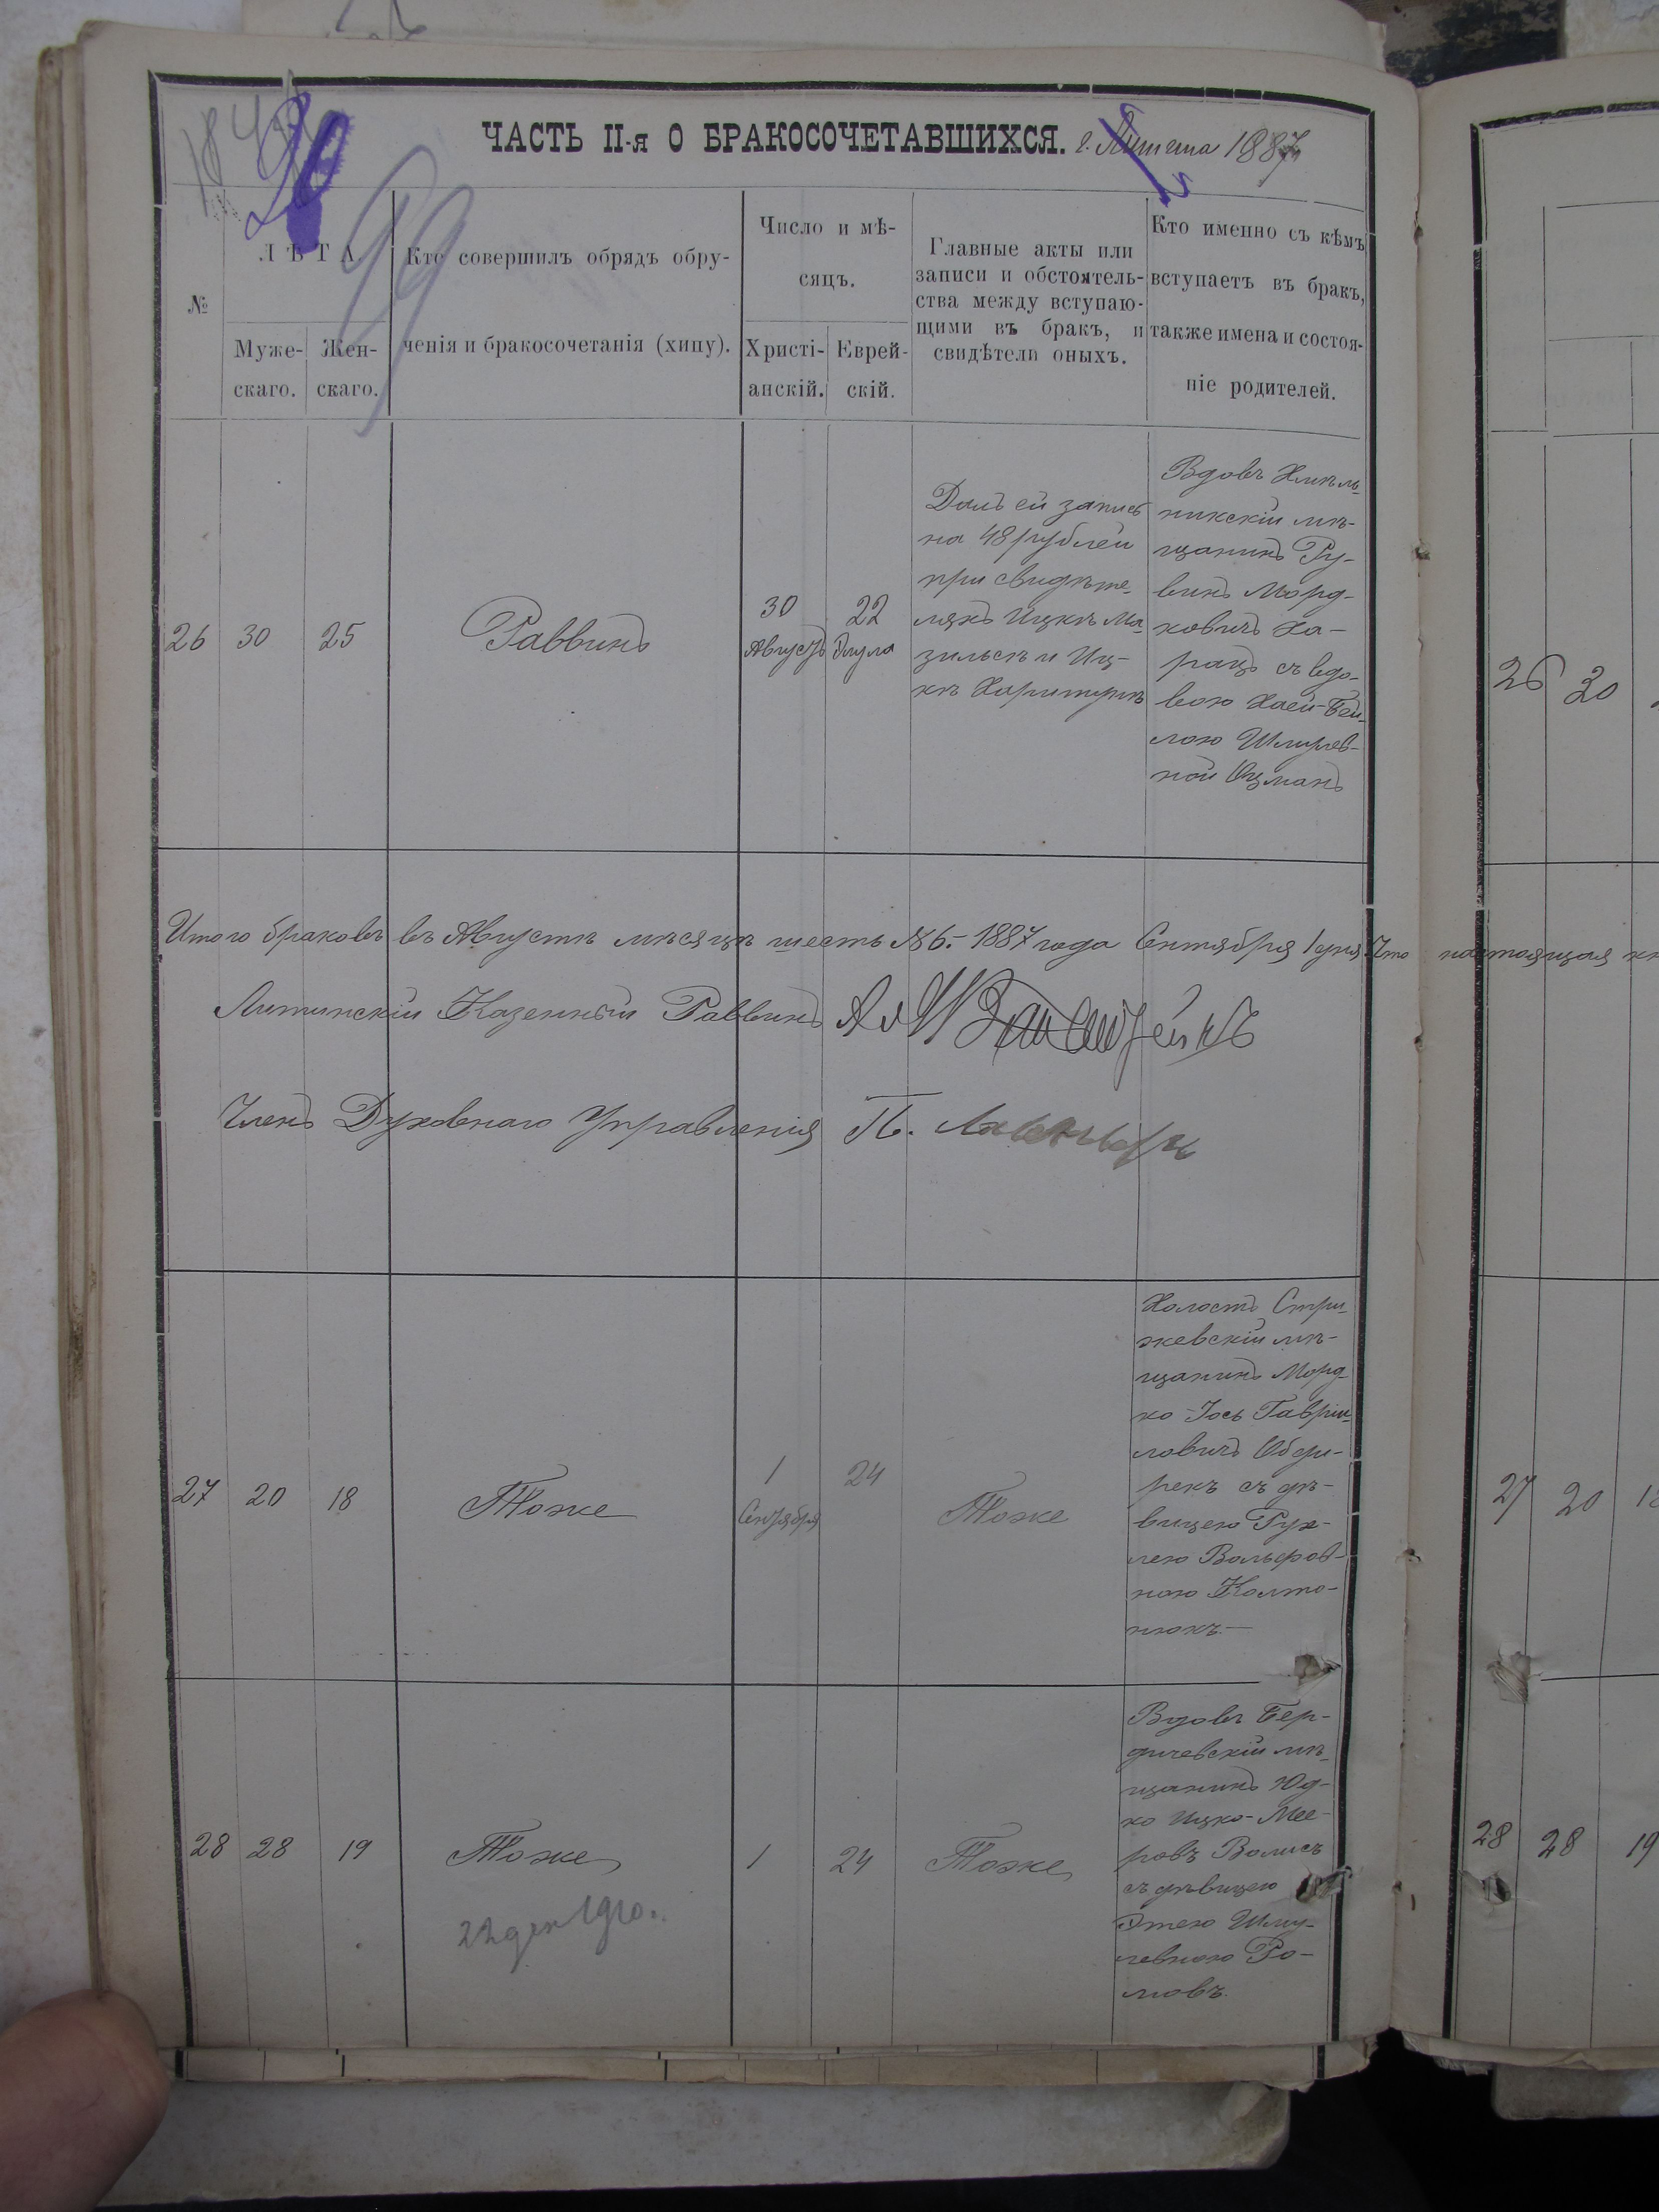 ЧАСТЬ II-я О БРАКОСОЧЕТАВШИХСЯ. г. Литина 1887
№
ЛѢТА.
Муже-
скаго.
Жен-
скаго.
Кто совершилъ обрядъ обру-
ченія и бракосочетанія (хипу).
Число и мѣ-
сяцъ.
Христі-
анскій.
Еврей-
скій.
Главные акты или
записи и обстоятель-
ства между вступаю-
щими въ бракъ, и
свидѣтели оныхъ.
Кто именно съ кѣмъ
вступаетъ въ бракъ,
также имена и состоя-
ніе родителей.
26
30
25
Раввинъ
30
Августъ
22
Элула
Далъ ей запись
на 48 рублей
при свидѣте-
ляхъ Ицкѣ Ма-
зильскѣ и Иц-
кѣ
Вдовъ Хмѣль-
никскій мѣ-
щанинъ Ру-
винъ Морд-
ковичъ Ха-
рацъ съ вдо-
вою Хаей-Бей-
лою Шмулев-
ной Оцманъ
26
30
Итого браковъ въ Августѣ мѣсяцѣ шесть №6.- 1887 года Сентября 1 дня Что настоящая
Литинскій Казенный Раввинъ
Членъ Духовнаго Управленія П.
27
20
18
Тоже
1
Сентября
24
Тоже
Холостъ Стри-
жевскій мѣ-
щанинъ Морд-
ко-Іось Гаврии-
ловичъ
съ дѣ-
вицею Рух-
лею Вольфов-
ною Колто-
нюкъ.-
27
20
28
28
19
Тоже
1
24
Тоже
Вдовъ Бер-
дичевскій мѣ-
щанинъ Юд-
ко Ицко-Мее-
ровъ Волисъ
съ дѣвицею
Этею Шму-
левною Ро-
мовъ.
28
28
19